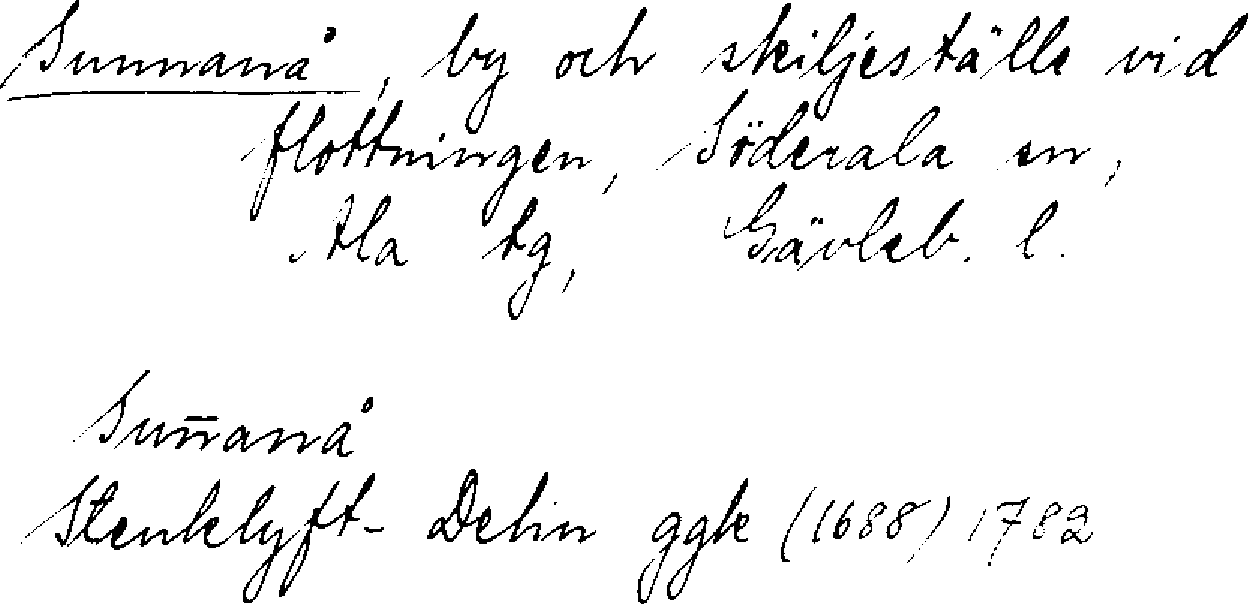 Sunnanå, by och skiljeställe vid
flottningen, Söderala sn,
Ala tg, Gävleb. l.
Sun̄anå
Stenklyft- Delin ggk (1688) 1782